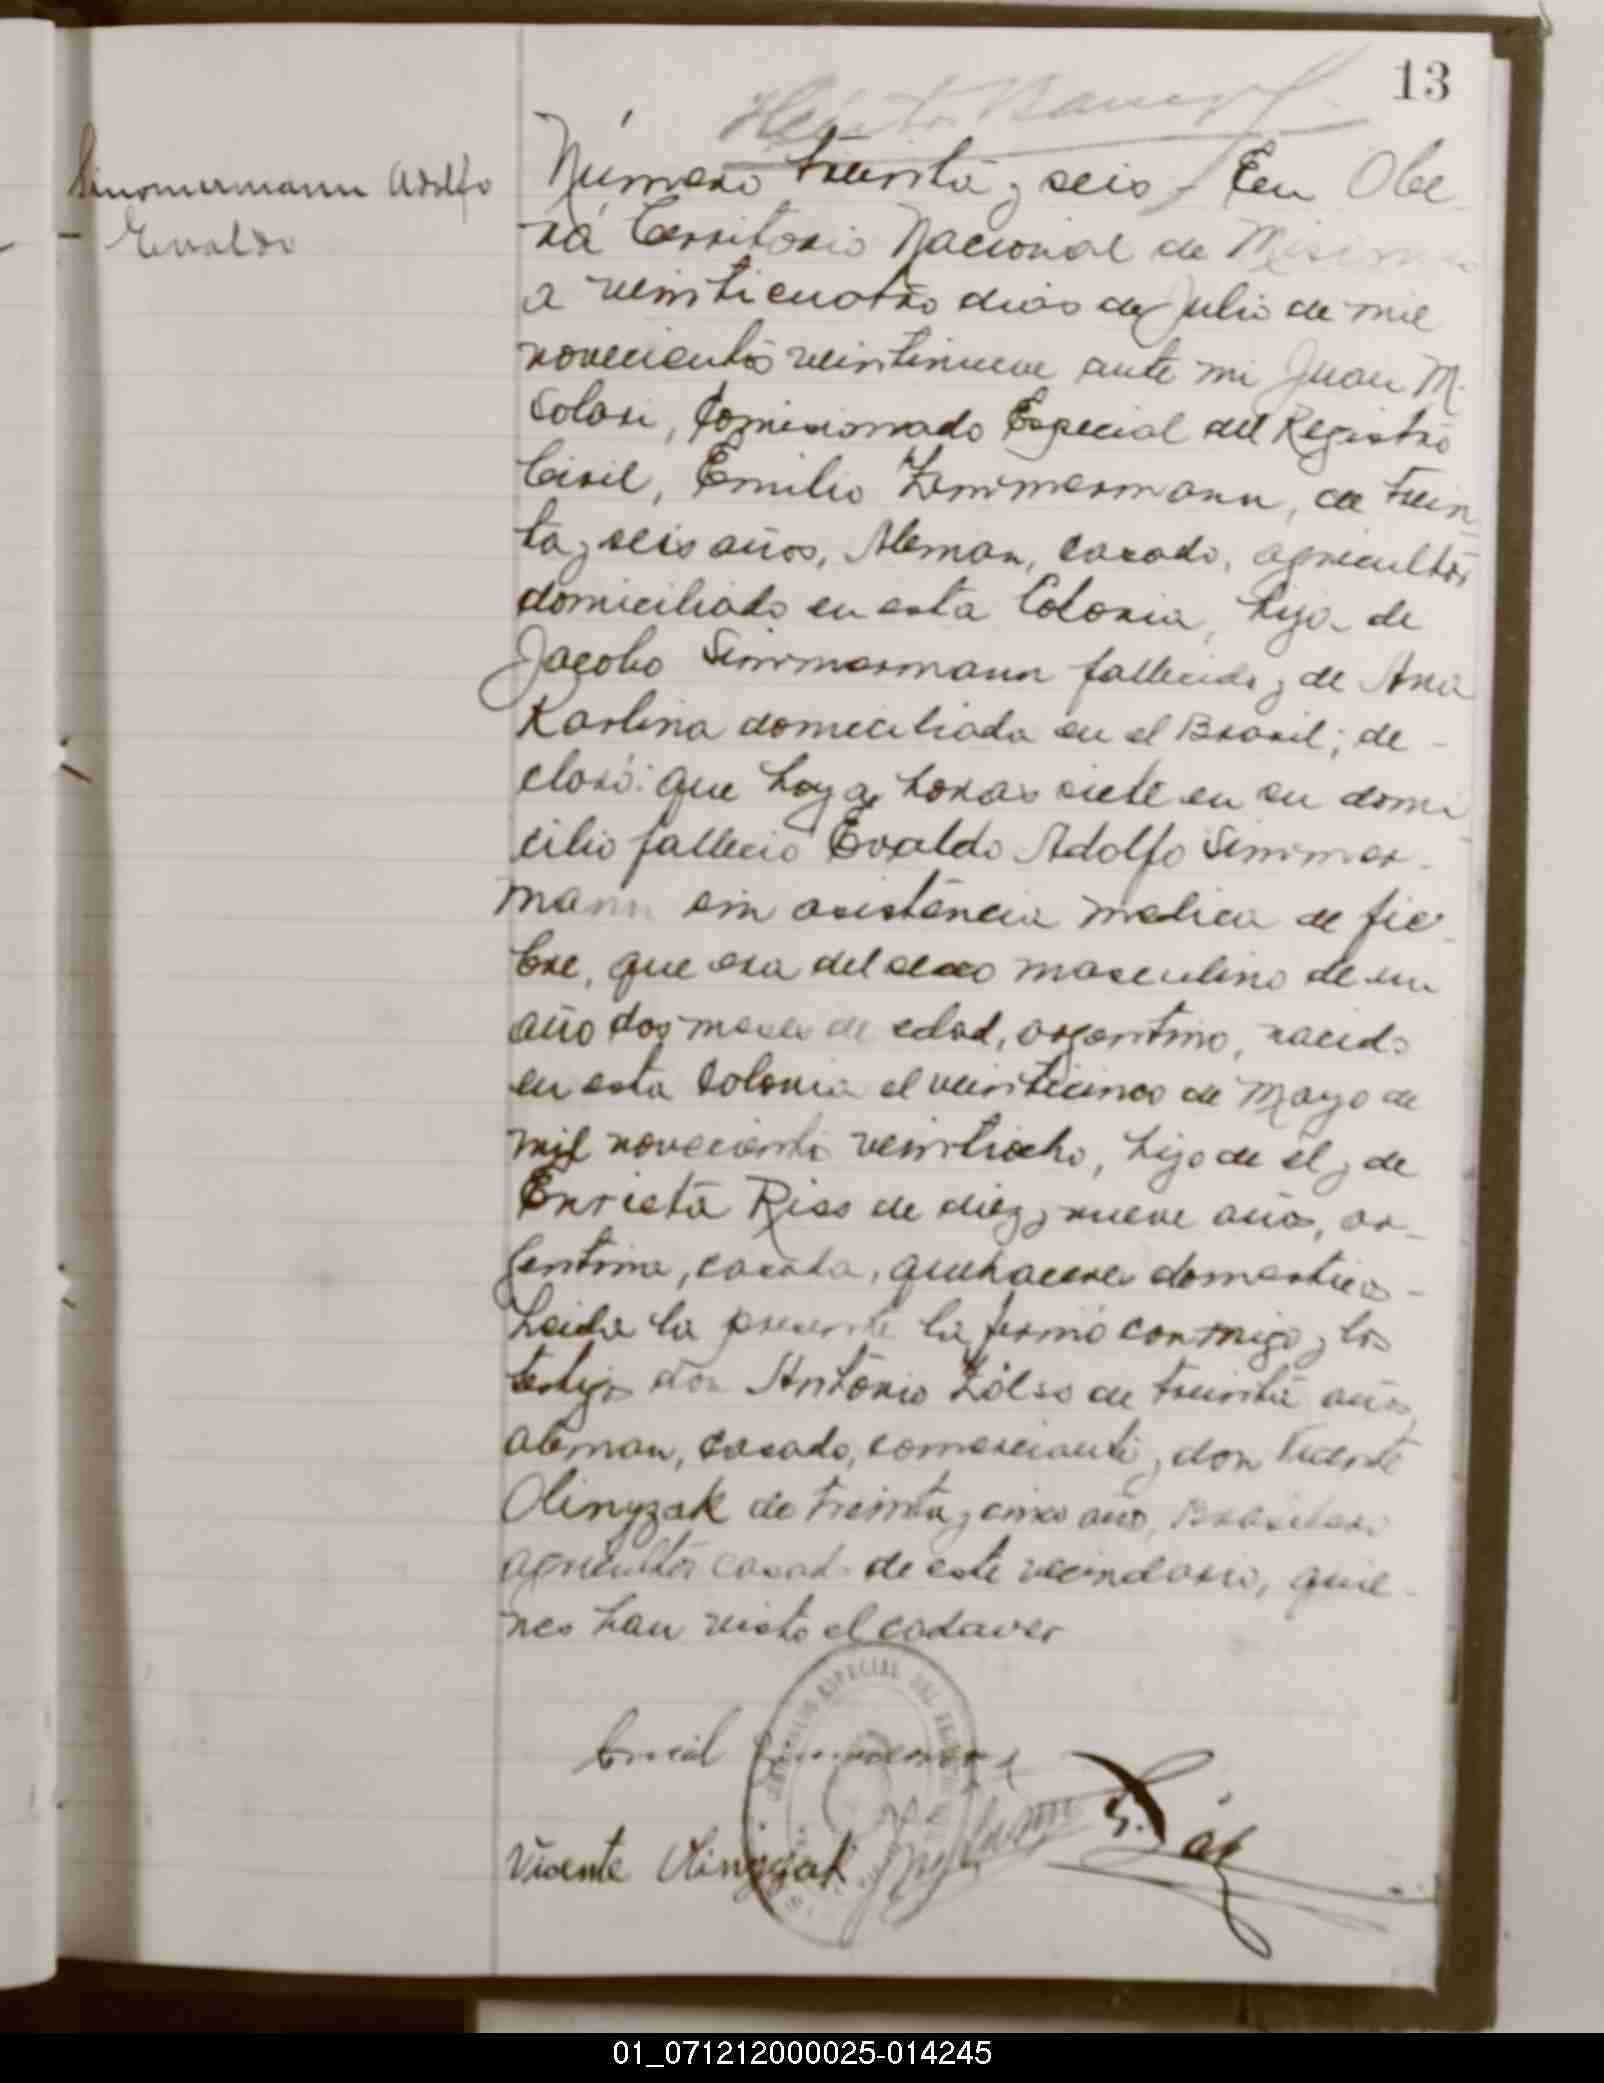 13
Simmermann Adolfo
Evaldo
Número treinta y seis - En Obe
rá Territorio Nacional de Misiones
a veinticuatro dias de Julio de mil
novecientos veintinueve ante mi Juan M.
Solari, Comisionado Especial del Registro
Civil, Emilio Zimmermann, de trein
ta y seis años, Aleman, casado, agricultor
domiciliado en esta Colonia, hijo de
Jacobo Simmermann fallecido y de Ana
Karlina domiciliada en el Brasil; de -
claró: que hoy a horas siete en su domi
cilio fallecio Evaldo Adolfo Simmer-
mann sin asistencia medica de fie-
bre, que era del sexo masculino de un
año dos meses de edad, argentino, nacido
en esta Colonia el veinticinco de Mayo de
mil novecientos veintiocho, hijo de el y de
Enrieta Riss de diez y nueve años, ar-
gentina, casada, quehaceres domesticos -
Leida la presente la firmó conmigo y los
testigos don Antonio Zölss de treinta años,
aleman, casado, comerciante y don Vicente
Olinyzak de treinta y cinco años, Brasilero
agricultor casado de este vecindario, quie-
nes han visto el cadaver
Emil
Vicente Olinyzak
01_071212000025-014245